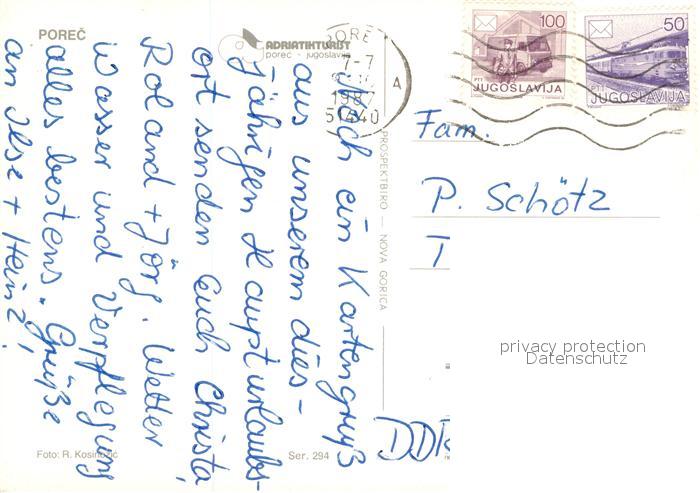 POREČ
ADRIATIKTURIST
porec - jugoslavija
100
PTT
JUGOSLAVIJA
50
PTT
JUGOSLAVIJA
7-7
1987
51440
A
Noch ein Kartengruß
aus unserem dies-
jährigen Haupturlaubs-
ort senden Euch Christa,
Roland + Jörg. Wetter
Wasser und Verpflegung
alles bestens. Grüße
an Ilse + Heinz!
Fam.
P. Schötz
T
DDR
PROSPEKTBIRO — NOVA GORICA
privacy protection
Datenschutz
Foto: R. Kosinožić
Ser. 294